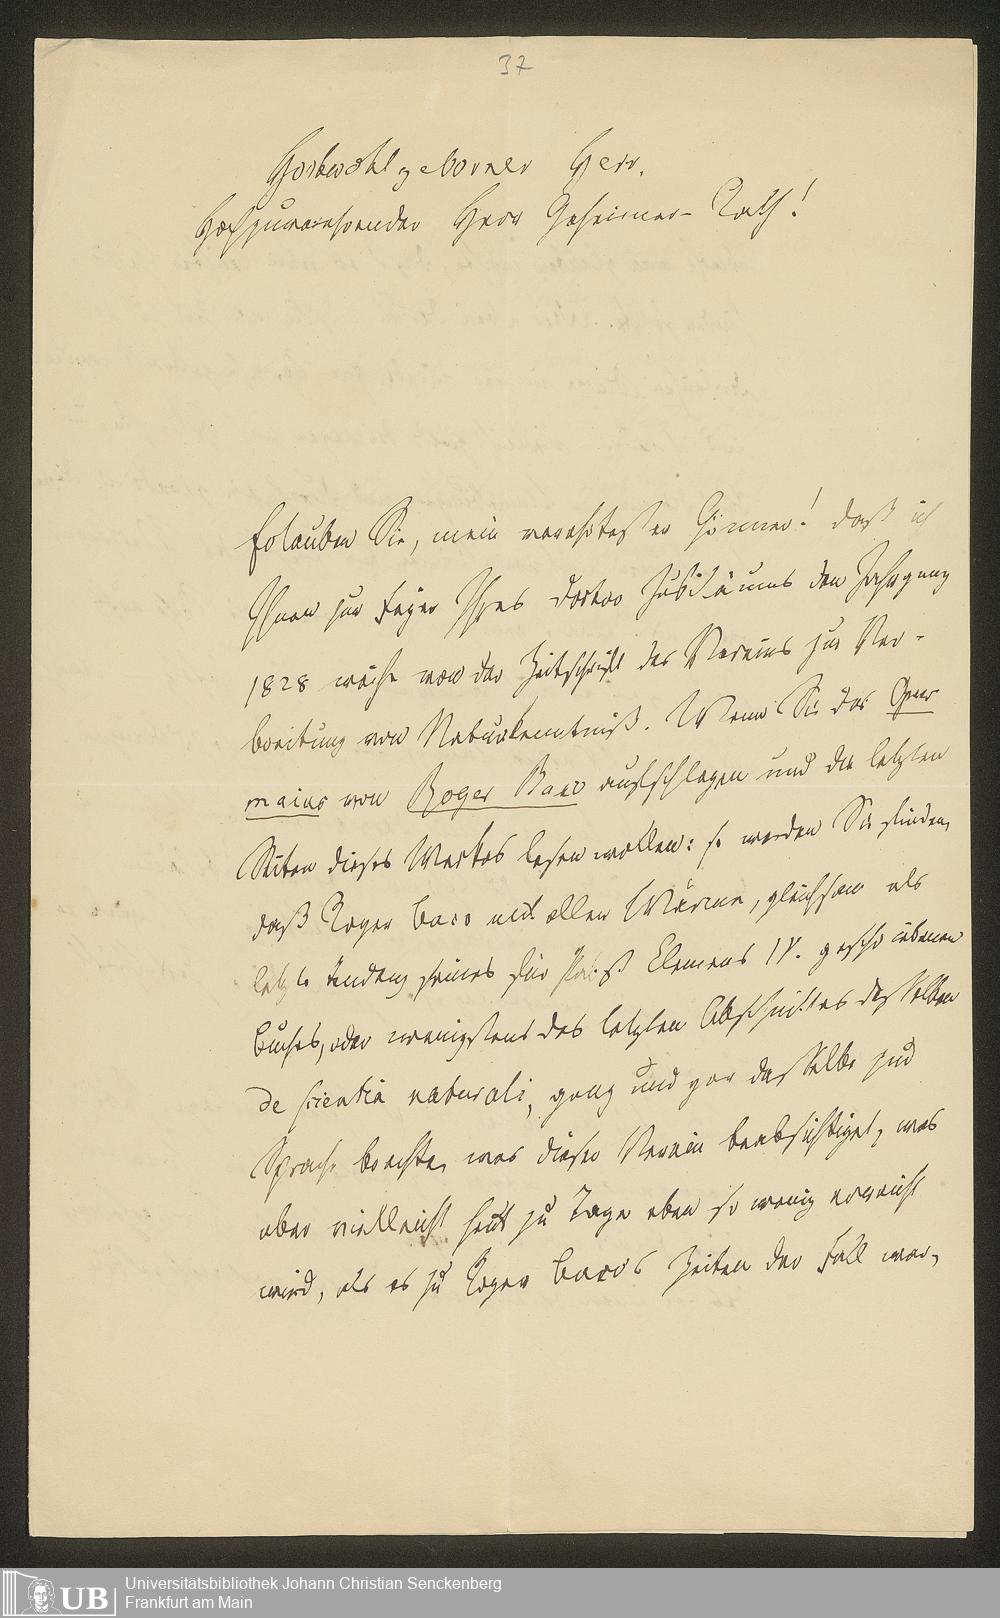 37
Hochwohlgeborner Herr,
Hochzuverehrender Herr Geheimer-Rath!
Erlauben Sie, mein verehrtester Gönner! daß ich
Ihnen zur Feyer Ihres Doctor Jubiläums den Jahrgang
1828 von der Zeitschrift des Vereins zur Ver-
breitung von Naturkenntniß. Wenn Sie das Opus
maius von Roger Baco aufschlagen und die letzten
Seiten dieses Werkes lesen wollen: so werden Sie finden,
daß Roger Baco mit aller Wärme, gleichsam als
letzte Tendenz seines für Pabst Clemens IV. geschriebenen
Buches, oder wenigstens des letzten Abschnittes desselben
de scientia naturali, ganz und gar dasselbe zur
Sprache brachte, was dieser Verein beabsichtiget, was
aber vielleicht heut zu Tage eben so wenig erreicht
wird, als es zu Roger Baco's Zeiten der Fall war,
UB
Universitätsbibliothek Johann Christian Senckenberg
Frankfurt am Main